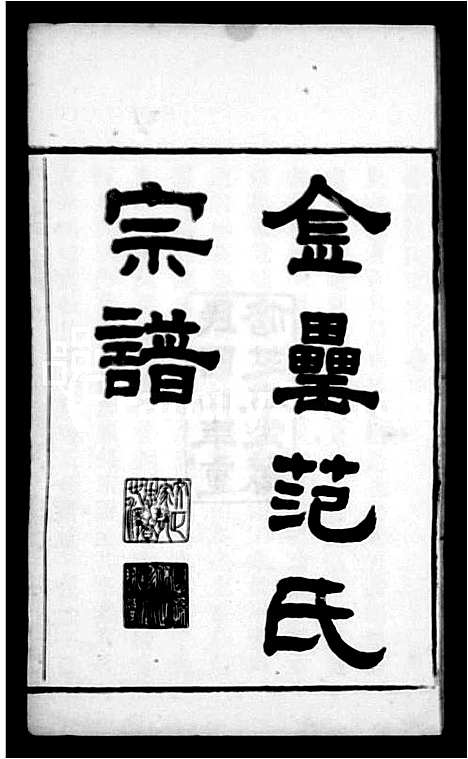 金罍范氏
宗譜